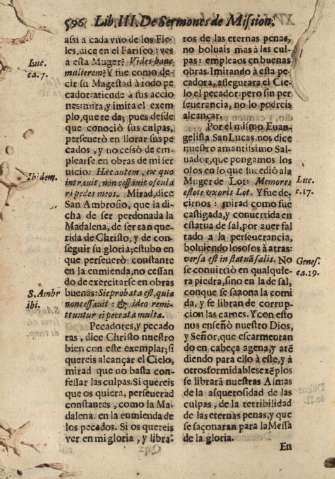 596 Lib. III. De Sermones de Mission.
assi a cada vno de los Fie-
les, dice en el Fariseo: ves
a esta Muger? Vides hanc
mulierem? Y fue como de-
cir su Magestad à todo pe-
cador: atiende à sus accio-
nes mira, y imita el exem-
plo, que te da; pues desde
que conociò sus culpas,
perseuerò en llorar sus pe-
cados, y no cesò de em-
plearse en obras de mi ser-
uicio. Hæc autem, ex quo
intrauit, non cessauit oscula
ri pedes meos. Mirad, dice
San Ambrosio, que la di-
cha de ser perdonada la
Madalena, de ser tan que-
rida de Christo, y de con-
seguir su gloria; estubo en
que perseuerò constante
en la enmienda, no cessan
do de exercitarse en obras
buenas: Sic probata est, quia
non cessauit: & ideo remit-
tuntur ei peccata multa.
Pecadores, y pecado
ras, dice Christo nuestro
bien con este exemplar; si
quereis alcançar el Cielo,
mirad que no basta con-
fessar las culpas. Si quereis
que os quiera, perseuerad
constantes, como la Ma-
dalena, en la enmienda de
los pecados. Si os quereis
ver en mi gloria, y libra-
Luc.
ca. 7.
Ibidem.
S. Ambr
ibi.
ros de las eternas penas,
no boluais mas à las cul-
pas: empleaos en buenas
obras. Imitando à esta pe-
cadora, assegurareis el Cie-
lo, el pecador pero sin per
seuerancia, no lo podreis
alcançar.
Por el mismo Euan-
gelista San Lucas nos dice
nuestro amantissimo Sal-
uador, que pongamos los
ojos en lo que sucediò à la
Muger de Lot: Memores
estote vxoris Lot. Y fue de-
cirnos: mirad como fue
castigada, y conuertida en
estatua de sal, por auer fal
tado à la perseuerancia,
boluiendo los ojos à atras:
versa est in statuã salis. No
se conuirtiò en qualquie-
ra piedra, sino en la de sal,
conque se saçona la comi
da, y se libran de corrup-
cion las carnes. Y con esto
nos enseñò nuestro Dios,
y Señor, que escarmentan
do en cabeça agena, y atẽ
diendo para ello à este, y à
otros formidables exẽplos
se librarà nuestras Almas
de la asquerosidad de las
culpas, de la terribilidad
de las eternas penas, y que
se saçonaran para la Messa
de la gloria.
Luc.
c. 17.
Genes.
ca. 19.
En